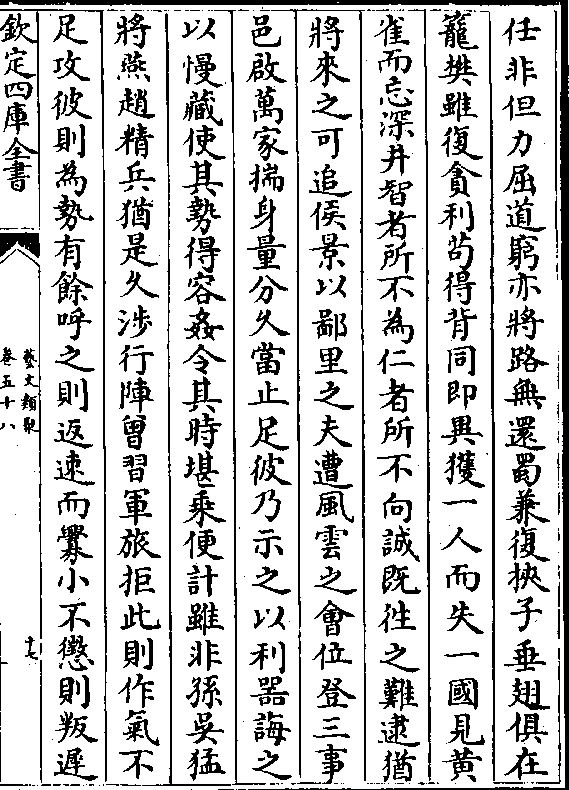 任非但力屈道窮亦將路無還蜀兼復挾子垂翅俱在
籠樊雖復貪利苟得背同即異獲一人而失一國見黄
雀而忘深井智者所不為仁者所不向誠既徃之難逮猶
將來之可追侯景以鄙里之夫遭風雲之會位登三事
邑啟萬家揣身量分久當止足彼乃示之以利器誨之
以慢藏使其勢得容姦令其時堪乗便計雖非孫吳猛
將燕趙精兵猶是久涉行陣曾習軍旅拒此則作氣不
足攻彼則為勢有餘呼之則返速而釁小不懲則叛遲
欽定四庫全書
藝文類聚
卷五十八
十七